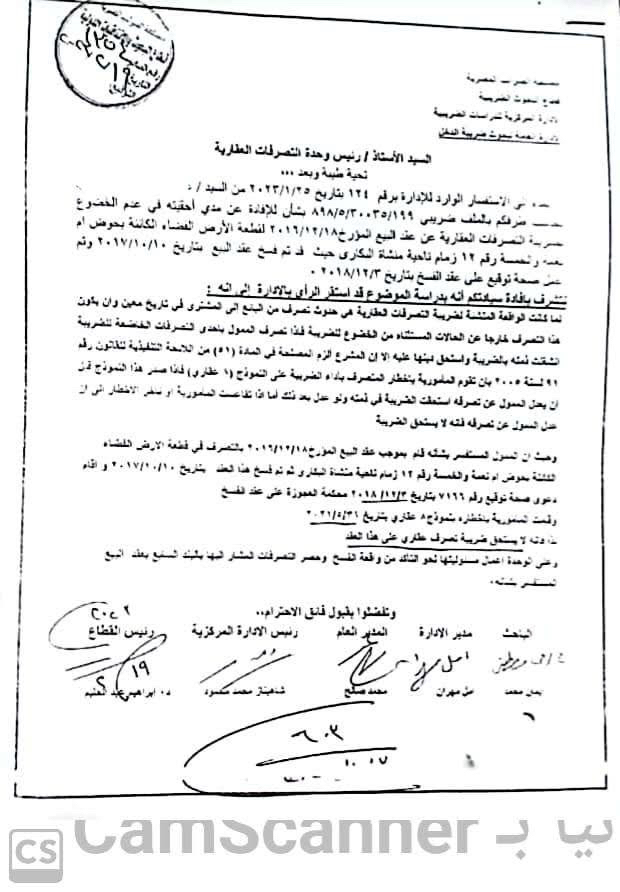 مصلحة الضرائب المصرية
قطاع البحوث الضريبية
الادارة المركزية للدراسات الضريبية
الادارة العامة لبحوث ضريبة الدخل
السيد الأستاذ / رئيس وحدة التصرفات العقارية
تحية طيبة وبعد ...
الاستفسار الوارد للإدارة برقم ١٢٤ بتاريخ ٢٠٢٣/١/٢٥ من السيد /
طرفكم بالملف ضريبي ٨٩٨/٥/٣٠٠٣٥/١٩٩ بشأن للإفادة عن مدي أحقيته في عدم الخضوع
لضريبة التصرفات العقارية عن عقد البيع المؤرخ ٢٠١٦/١٢/١٨ لقطعة الأرض الفضاء الكائنة بحوض ام
نعمه والخمسة رقم ١٢ زمام ناحية منشاة البكارى حيث قد تم فسخ عقد البيع بتاريخ ٢٠١٧/١٠/١٠ وتم
عمل صحة توقيع على عقد الفسخ بتاريخ ٢٠١٨/١٢/٣ .
نتشرف بإفادة سيادتكم أنه بدراسة الموضوع قد استقر الرأي بالادارة إلى انه :
لما كانت الواقعة المنشئة لضريبة التصرفات العقارية هي حدوث تصرف من البائع الى المشترى في تاريخ معين وان يكون
هذا التصرف خارجا عن الحالات المستثناه من الخضوع للضريبة فاذا تصرف الممول باحدى التصرفات الخاضعة للضريبة
انشقلت ذمته بالضريبة واستحق دينها عليه إلا إن المشرع الزم المصلحة في المادة (٥١) من اللائحة التنفيذية للقانون رقم
٩١ لسنة ٢٠٠٥ بان تقوم المأمورية بإخطار المتصرف بأداء الضريبة على النموذج (١ عقاري) فاذا صدر هذا النموذج قبل
ان يعدل الممول عن تصرفه استحقت الضريبة في ذمته ولو عدل بعد ذلك أما اذا تقاعست المأمورية او تاخر الاخطار الى ان
عدل الممول عن تصرفه فانه لا يستحق الضريبة
وحيث ان الممول المستفسر بشأنه قام بموجب عقد البيع المؤرخ ٢٠١٦/١٢/١٨ بالتصرف في قطعة الارض الفضاء
الكائنة بحوض ام نعمة والخمسة رقم ١٢ زمام ناحية منشاة البكارى ثم تم فسخ هذا العقد بتاريخ ٢٠١٧/١٠/١٠ و اقام
دعوى صحة توقيع رقم ٧١٦٦ بتاريخ ٢٠١٨/١٢/٣ محكمة العجوزة على عقد الفسخ
وقامت المأمورية باخطاره بنموذج ٨ عقاري بتاريخ ٢٠٢١/٥/٣١
فانه لا يستحق ضريبة تصرف عقاري على هذا العقد
وعلى الوحدة اعمال مسئوليتها نحو التأكد من واقعة الفسخ وحصر التصرفات المشار اليها بالبند السابع بعقد البيع
المستفسر بشانه.
وتفضلوا بقبول فائق الاحترام،،
الباحث مدير الادارة المدير العام رئيس الادارة المركزية رئيس القطاع
ايمن محمد امل مهران محمد صالح شاهيناز محمد محمود د. ابراهيم عبد العليم
٦٠٣
CS CamScanner